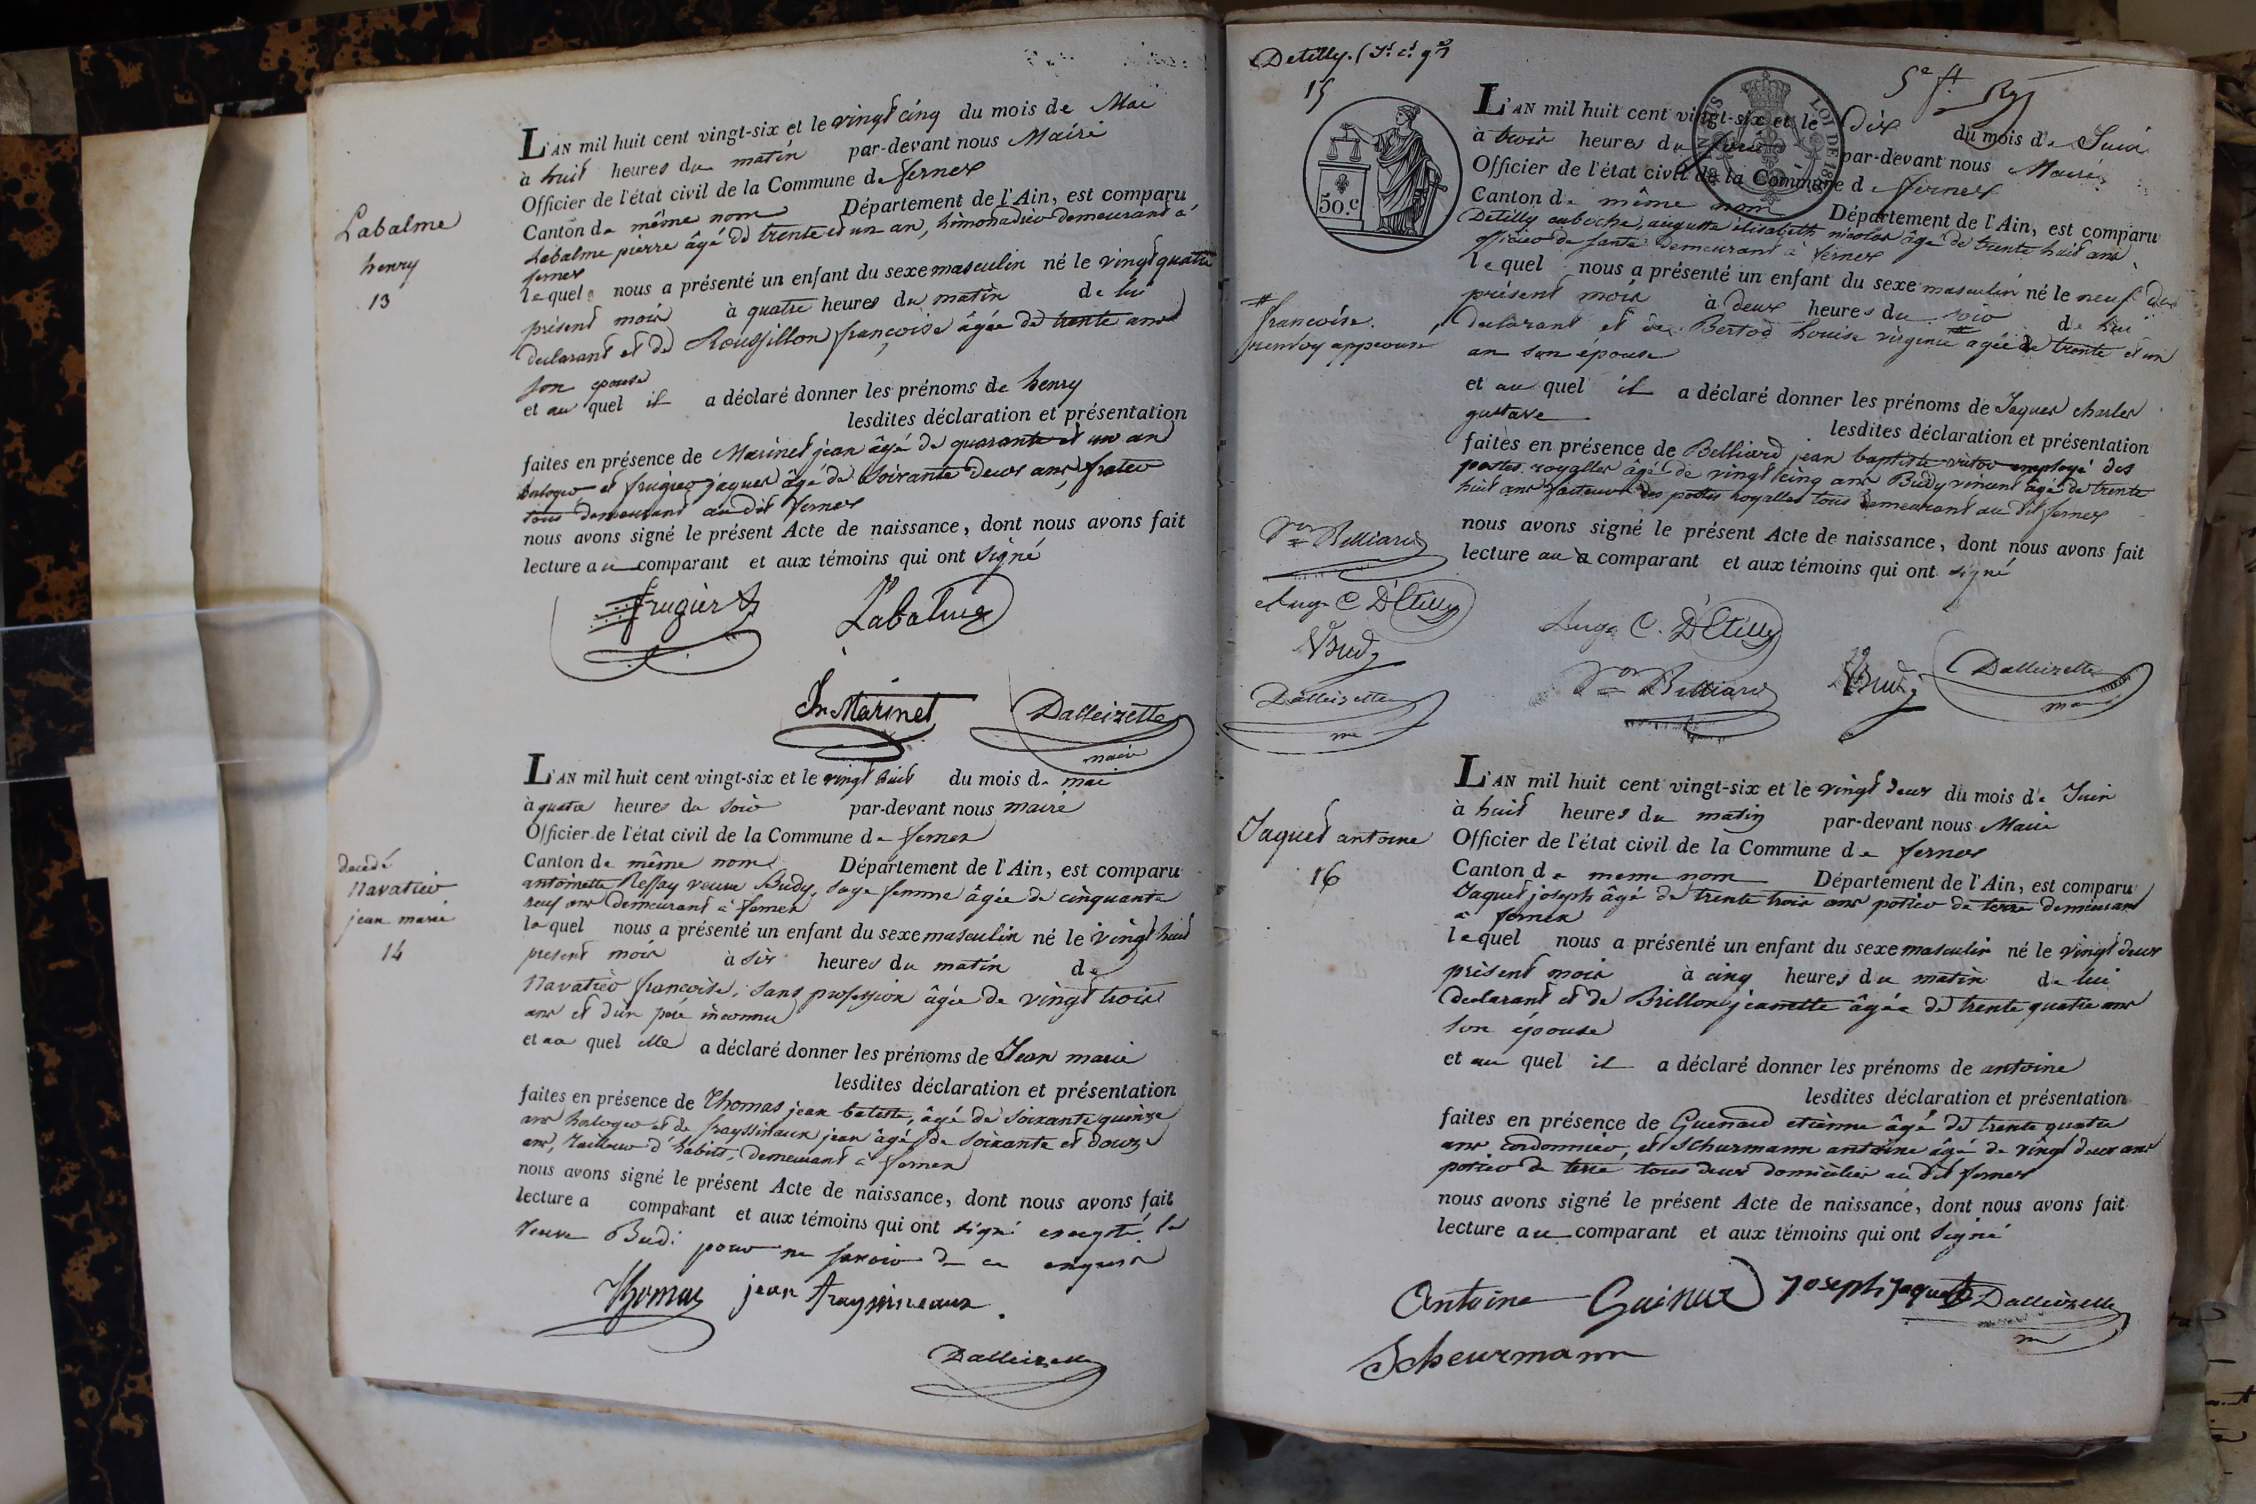 Labalme
henry
13
L'AN mil huit cent vingt-six et le vingt cinq du mois de Mai
à huit heures du matin par-devant nous Maire
Officier de l'état civil de la Commune de fernex
Canton de même nom Département de l'Ain, est comparu
Labalme pierre âgé de trente et un an, limonadier demeurant à
fernex
lequel nous a présenté un enfant du sexe masculin né le vingt quatre
présent mois à quatre heures du matin de lui
declarant et de Roussillon françoise âgée de trente ans
son epouse
et au quel il a déclaré donner les prénoms de henry
lesdites déclaration et présentation
faites en présence de Marinet jean âgé de quarante et un an
horloger et frugier jaques âgé de soixante deux ans, frater
tous demeurant au dit fernex
nous avons signé le présent Acte de naissance, dont nous avons fait
lecture au comparant et aux témoins qui ont signé
Frugier Labalme
Jn Marinet Dalleizette
maire
decedé
Navatier
jean marie
14
L'AN mil huit cent vingt-six et le vingt huit du mois de mai
à quatre heures du soir par-devant nous maire
Officier de l'état civil de la Commune de fernex
Canton de même nom Département de l'Ain, est comparu
antoinette Reffay veuve Budy, sage femme âgée de cinquante
neuf ans demeurant à fernex
lequel nous a présenté un enfant du sexe masculin né le vingt huit
present mois à six heures du matin de
Navatier francoise, sans profession âgée de vingt trois
ans et d'un père inconnu
et au quel elle a déclaré donner les prénoms de Jean marie
lesdites déclaration et présentation
faites en présence de Thomas jean batiste, âgé de soixante quinze
ans horloger et de frayssinaux jean âgé de soixante et douze
ans, tailleur d'habits, demeurant à fernex
nous avons signé le présent Acte de naissance, dont nous avons fait
lecture a comparant et aux témoins qui ont signé excepté la
veuve Budi pour ne savoir de ce enquise
Thomas jean frayssineaux
Dalleizette
Detilly
15
50.c
L'AN mil huit cent vingt-six et le dix du mois de Juin
à trois heures du soir par-devant nous Maire
Officier de l'état civil de la Commune de fernex
Canton de même nom Département de l'Ain, est comparu
Detilly caboche, auguste elisabeth nicolas âgé de trente huit ans
officier de santé demeurant à fernex
lequel nous a présenté un enfant du sexe masculin né le neuf du
présent mois à deux heures du soir de lui
declarant et de Bertod Louise virginie # agée de trente et un
an son épouse
# francoise.
renvoy approuvé
et au quel il a déclaré donner les prénoms de Jaques charles
gustave
lesdites déclaration et présentation
faites en présence de Belliard jean baptiste victor employé des
postes royalles âgé de vingt cinq ans Budy vincent âgé de trente
huit ans facteur des postes royalles tous demeurant au dit fernex
nous avons signé le présent Acte de naissance, dont nous avons fait
lecture au comparant et aux témoins qui ont signé
Vor Billiard
Aug C D'Etilly
VBudy
Dalleizette
Aug C. D'Etilly
Vor Billiard VBudy Dalleizette
Jaquet antoine
16
L'AN mil huit cent vingt-six et le vingt deux du mois de Juin
à huit heures du matin par-devant nous Maire
Officier de l'état civil de la Commune de fernex
Canton de meme nom Département de l'Ain, est comparu
Jaquet joseph âgé de trente trois ans potier de terre demeurant
à fernex
lequel nous a présenté un enfant du sexe masculin né le vingt deux
présent mois à cinq heures du matin de lui
declarant et de Brillon jeanette âgée de trente quatre ans
son épouse
et au quel il a déclaré donner les prénoms de antoine
lesdites déclaration et présentation
faites en présence de Guenard etienne âgé de trente quatre
ans cordonnier, et Schurmann antoine âgé de vingt deux ans
potier de terre tous deux domicilier au dit fernex
nous avons signé le présent Acte de naissance, dont nous avons fait
lecture au comparant et aux témoins qui ont signé
Antoine Guinard joseph jaquet Dalleizette
Scheurmann